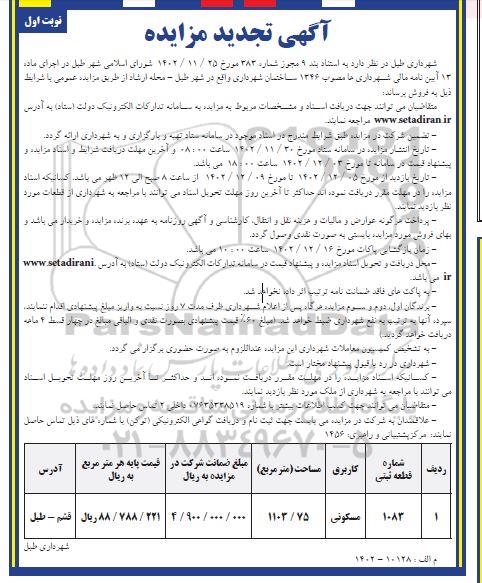 نوبت اول
آگهی تجدید مزایده
شهرداری طبل در نظر دارد به استناد بند ۹ مجوز شماره ۳۸۳ مورخ ۲۵ / ۱۱ / ۱۴۰۲ شورای اسلامی شهر طبل در اجرای ماده
۱۳ آیین نامه مالی شهرداری ها مصوب ۱۳۴۶ ساختمان شهرداری واقع در شهر طبل - محله ارشاد از طریق مزایده عمومی با شرایط
ذیل به فروش برساند:
متقاضیان می توانند جهت دریافت اسناد و مشخصات مربوط به مزایده به سامانه تدارکات الکترونیک دولت (ستاد) به آدرس
www.setadiran.ir مراجعه نمایند.
– تضمین شرکت در مزایده طبق شرایط مندرج در اسناد موجود در سامانه ستاد تهیه و بارگزاری و به شهرداری ارائه گردد.
– تاریخ انتشار مزایده در سامانه ستاد مورخ ۳۰ / ۱۱ / ۱۴۰۲ ساعت ۰۸:۰۰ و آخرین مهلت دریافت شرایط و اسناد مزایده و
پیشنهاد قیمت در سامانه تا مورخ ۰۳ / ۱۲ / ۱۴۰۲ ساعت ۱۸:۰۰ می باشد.
– تاریخ بازدید از مورخ ۰۵ / ۱۲ / ۱۴۰۲ تا مورخ ۰۹ / ۱۲ / ۱۴۰۲ از ساعت ۸ صبح الی ۱۲ ظهر می باشد. کسانیکه اسناد
مزایده را در مهلت مقرر دریافت نموده اند حداکثر تا آخرین روز مهلت تحویل اسناد می توانند با مراجعه به شهرداری از قطعات مورد
نظر بازدید نمایند.
– پرداخت هرگونه عوارض و مالیات و هزینه نقل و انتقال، کارشناسی و آگهی روزنامه به عهده برنده مزایده و خریدار می باشد و
بهای فروش مورد مزایده بایستی به صورت نقدی وصول گردد.
– زمان بازگشایی پاکات مورخ ۱۶ / ۱۲ / ۱۴۰۲ ساعت ۱۰:۰۰ می باشد.
– محل دریافت و تحویل اسناد مزایده و پیشنهاد قیمت در سامانه تدارکات الکترونیک دولت (ستاد) به آدرس www.setadirani.
ir می باشد.
– به پاکت های فاقد ضمانت نامه ترتیب اثر داده نخواهد شد.
– برندگان اول، دوم و سوم مزایده هرگاه پس از اعلام شهرداری ظرف مدت ۷ روز نسبت به واریز مبلغ پیشنهادی اقدام ننمایند،
سپرده آنها به ترتیب به نفع شهرداری ضبط خواهد شد. (مبلغ ۶۰٪ قیمت پیشنهادی بصورت نقدی و الباقی مبالغ در چهار قسط ۴ ماهه
دریافت خواهد گردید.)
– به تشخیص کمیسیون معاملات شهرداری این مزایده عنداللزوم به صورت حضوری برگزار می گردد.
– شهرداری در رد یا قبول پیشنهاد مختار است.
– کسانیکه اسناد مزایده را در مهلت مقرر دریافت نموده اند و حداکثر تا آخرین روز مهلت تحویل اسناد
می توانند با مراجعه به شهرداری از ملک مورد نظر بازدید نمایند.
– متقاضیان می توانند جهت کسب اطلاعات بیشتر با شماره ۰۷۶۳۵۳۳۸۵۱۹ داخلی ۲ تماس حاصل نمایند.
– علاقمندان به شرکت در مزایده می بایست جهت ثبت نام و دریافت گواهی الکترونیکی (توکن) با شماره های ذیل تماس حاصل
نمایند: مرکز پشتیبانی و راهبری: ۱۴۵۶
ردیف شماره قطعه ثبتی کاربری مساحت (متر مربع) مبلغ ضمانت شرکت در مزایده به ریال قیمت پایه هر متر مربع به ریال آدرس
۱ ۱۰۸۳ مسکونی ۷۵ / ۱۱۰۳ ۰۰۰ / ۰۰۰ / ۹۰۰ / ۴ ۲۲۱ / ۷۸۸ / ۸۸ ریال قشم – طبل
شهرداری طبل
م الف : ۱۰۱۲۸ – ۱۴۰۲
۰۲۱-۸۸۳۴۹۶۷۰-۵